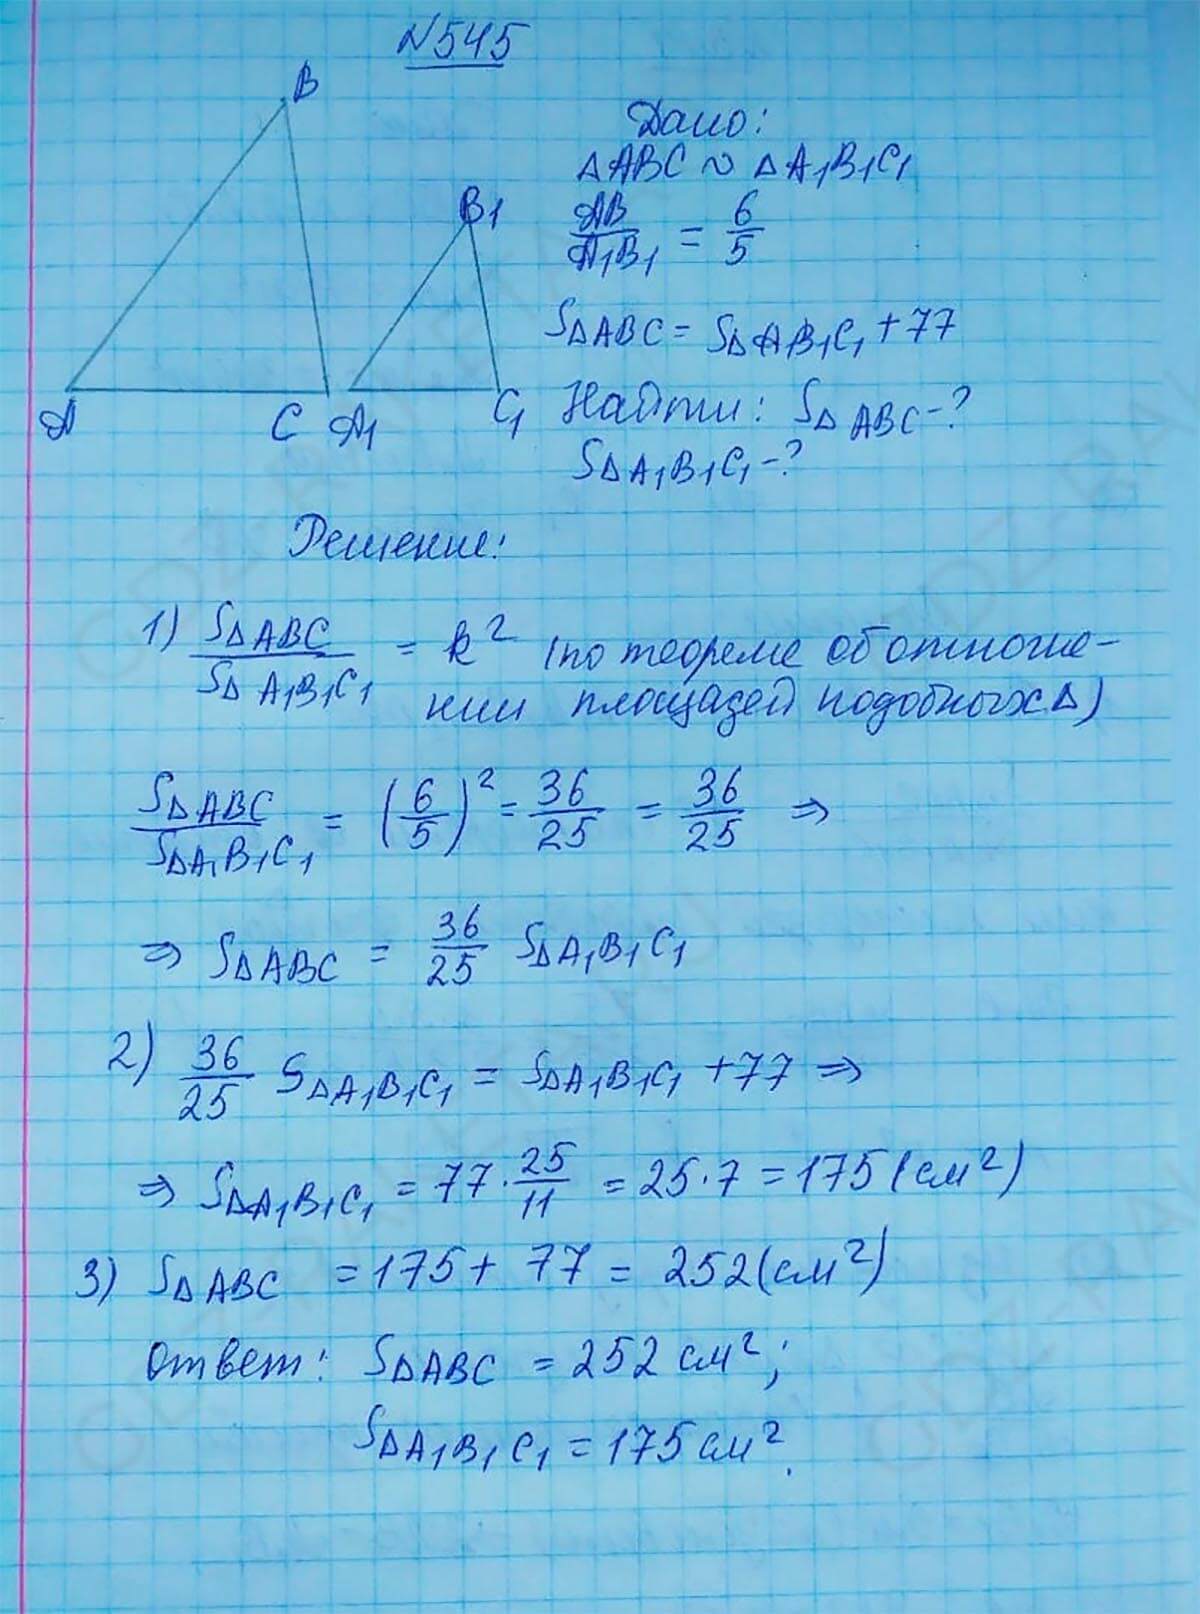 №545
B
Дано:
ΔABC ∾ ΔA₁B₁C₁
B₁
AB/A₁B₁ = 6/5
SΔABC = SΔA₁B₁C₁ + 77
A C A₁ C₁
Найти: SΔABC-?
SΔA₁B₁C₁-?
Решение:
1) SΔABC/SΔA₁B₁C₁ = k² (по теореме об отноше-
нии площадей подобных Δ)
SΔABC/SΔA₁B₁C₁ = (6/5)² = 36/25 = 36/25 ⇒
⇒ SΔABC = 36/25 SΔA₁B₁C₁
2) 36/25 SΔA₁B₁C₁ = SΔA₁B₁C₁ + 77 ⇒
⇒ SΔA₁B₁C₁ = 77 · 25/11 = 25·7 = 175 (см²)
3) SΔABC = 175 + 77 = 252 (см²)
Ответ: SΔABC = 252 см²;
SΔA₁B₁C₁ = 175 см².